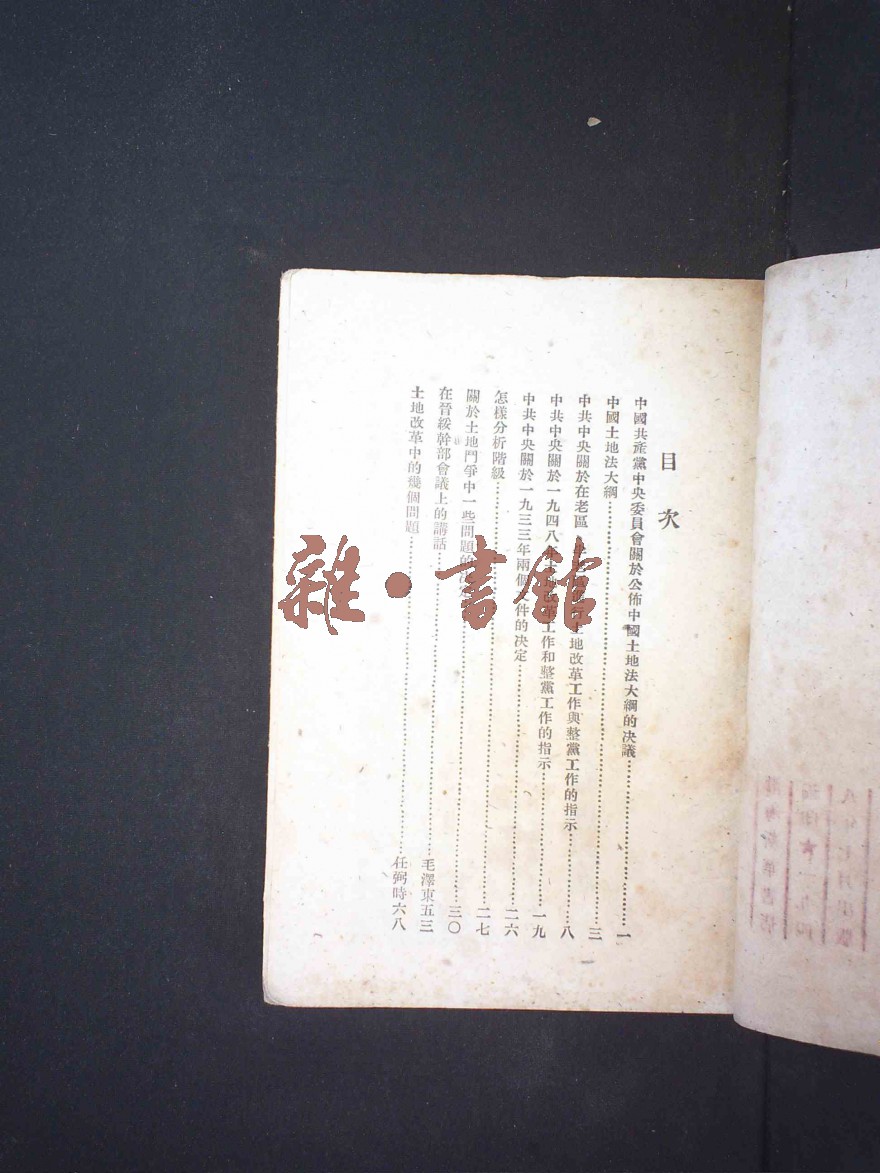 目次
中國共產黨中央委員會關於公佈中國土地法大綱的决議……一
中國土地法大綱……三
中共中央關於在老區 行土地改革工作與整黨工作的指示……八
中共中央關於一九四八年 改革工作和整黨工作的指示……一九
中共中央關於一九三三年兩個 件的决定……二六
怎樣分析階級……二七
關於土地鬥爭中一些問題的 ……三〇
在晉綏幹部會議上的講話……毛澤東五三
土地改革中的幾個問題……任弼時六八
雜·書館